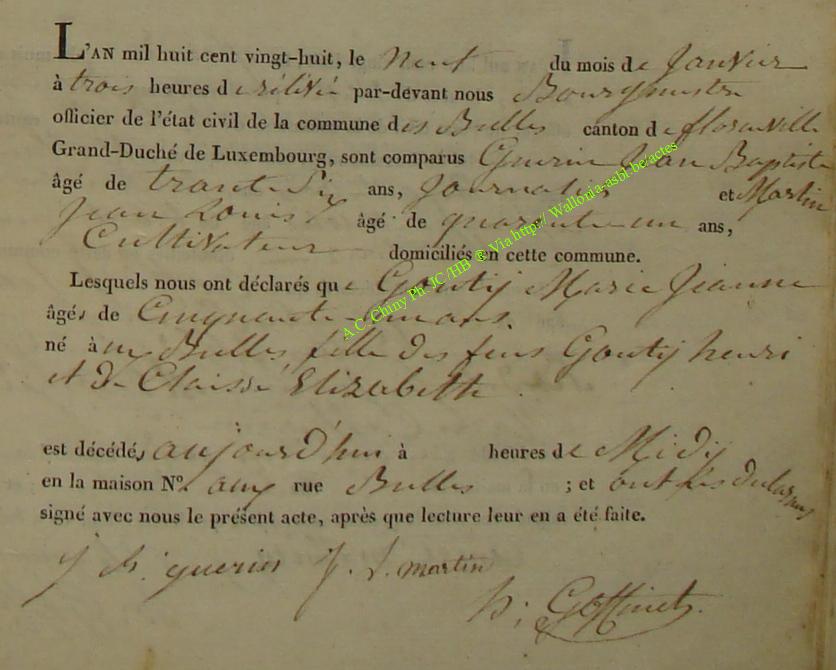 L'AN mil huit cent vingt-huit, le neuf du mois de Janvier
à trois heures de rélévé par-devant nous Bourgmestre
officier de l'état civil de la commune des Bulles canton de florenville
Grand-Duché de Luxembourg, sont comparus Guerin Jean Baptiste
âgé de trante Six ans, Journalier et Martin
Jean Louis âgé de quarente un ans,
Cultivateur domiciliés en cette commune.
Lesquels nous ont déclarés que Gouty Marie Jeanne
âgés de Cinquante ans.
né à aux Bulles fille des feus Gouty henri
et de Claisse Elizabette
est décédés aujourd'hui à heures de Midy
en la maison N°. aux rue Bulles ; et ont les declarans
signé avec nous le présent acte, après que lecture leur en a été faite.
j b guerin J. L. martin
h: Goffinet
A.C. Chiny Ph JC/HB ® Via http:// Wallonia-asbl.be/actes